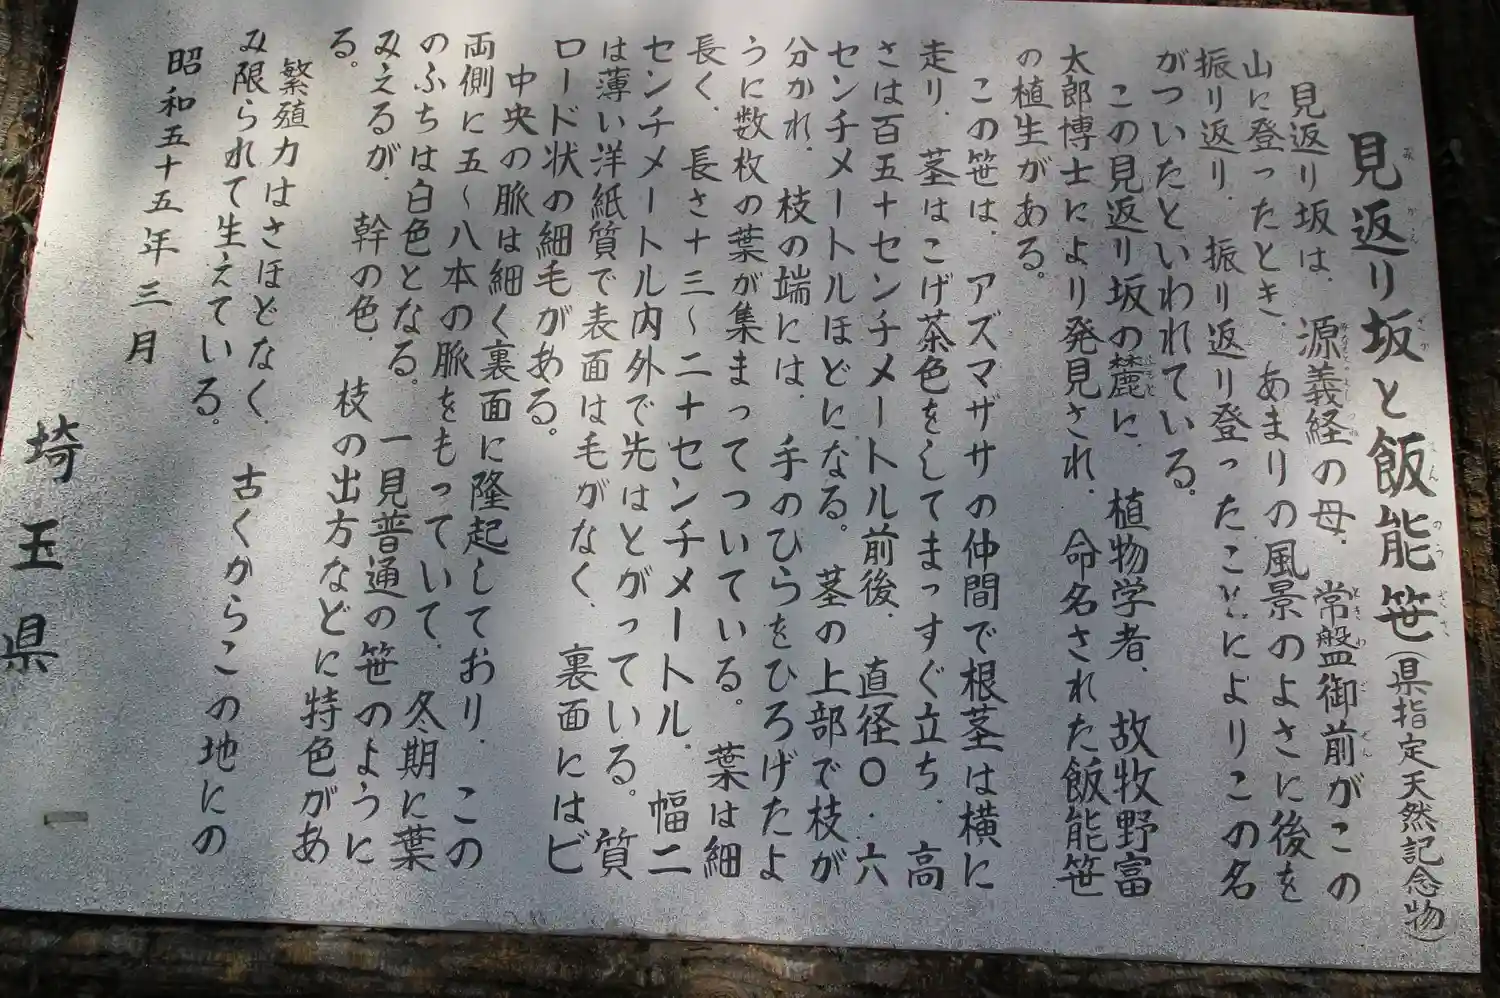 見返り坂と飯能笹(県指定天然記念物)
見返り坂は、源義経の母、常盤御前がこの
山に登ったとき、あまりの風景のよさに後を
振り返り、振り返り登ったことによりこの名
がついたといわれている。
この見返り坂の麓に、植物学者、故牧野富
太郎博士により発見され、命名された飯能笹
の植生がある。
この笹は、アズマザサの仲間で根茎は横に
走り、茎はこげ茶色をしてまっすぐ立ち、高
さは百五十センチメートル前後、直径〇・六
センチメートルほどになる。茎の上部で枝が
分かれ、枝の端には、手のひらをひろげたよ
うに数枚の葉が集まってついている。葉は細
長く、長さ十三〜二十センチメートル、幅二
センチメートル内外で先はとがっている。質
は薄い洋紙質で表面は毛がなく、裏面にはビ
ロード状の細毛がある。
中央の脈は細く裏面に隆起しており、この
両側に五〜八本の脈をもっていて、冬期に葉
のふちは白色となる。一見普通の笹のように
みえるが、幹の色、枝の出方などに特色があ
る。
繁殖力はさほどなく、古くからこの地にの
み限られて生えている。
昭和五十五年三月
埼玉県